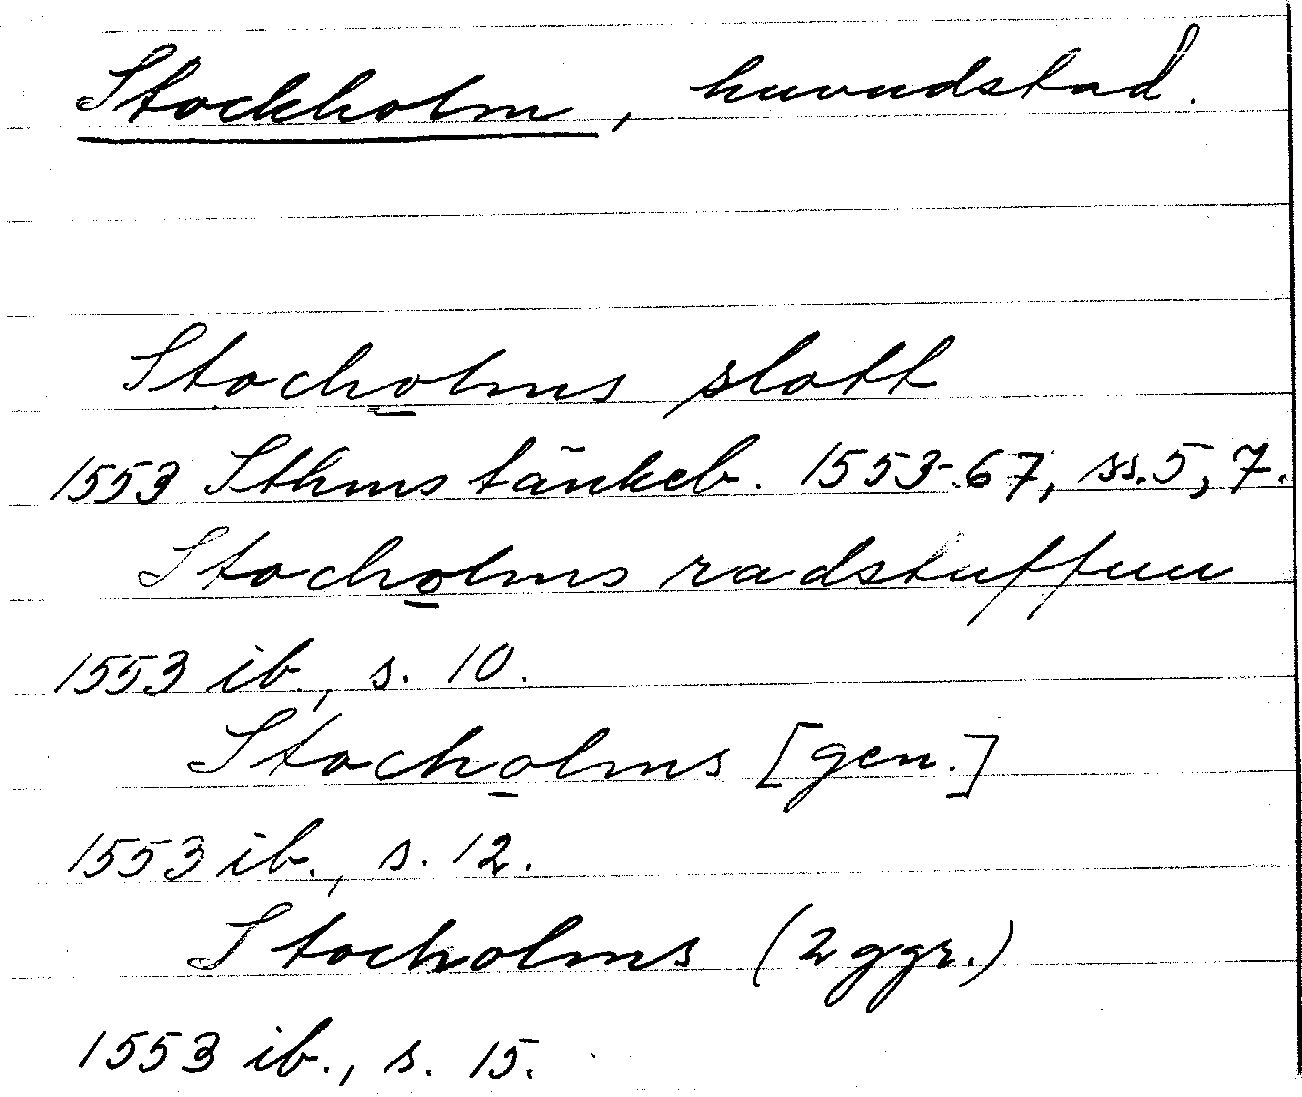 Stockholm, huvudstad.
Stocholms slott
1553 Sthms tänkeb. 1553-67, ss. 5, 7.
Stocholms radstuffuu
1553 ib., s. 10.
Stocholms [gen.]
1553 ib., s. 12.
Stocholms (2 ggr.)
1553 ib., s. 15.